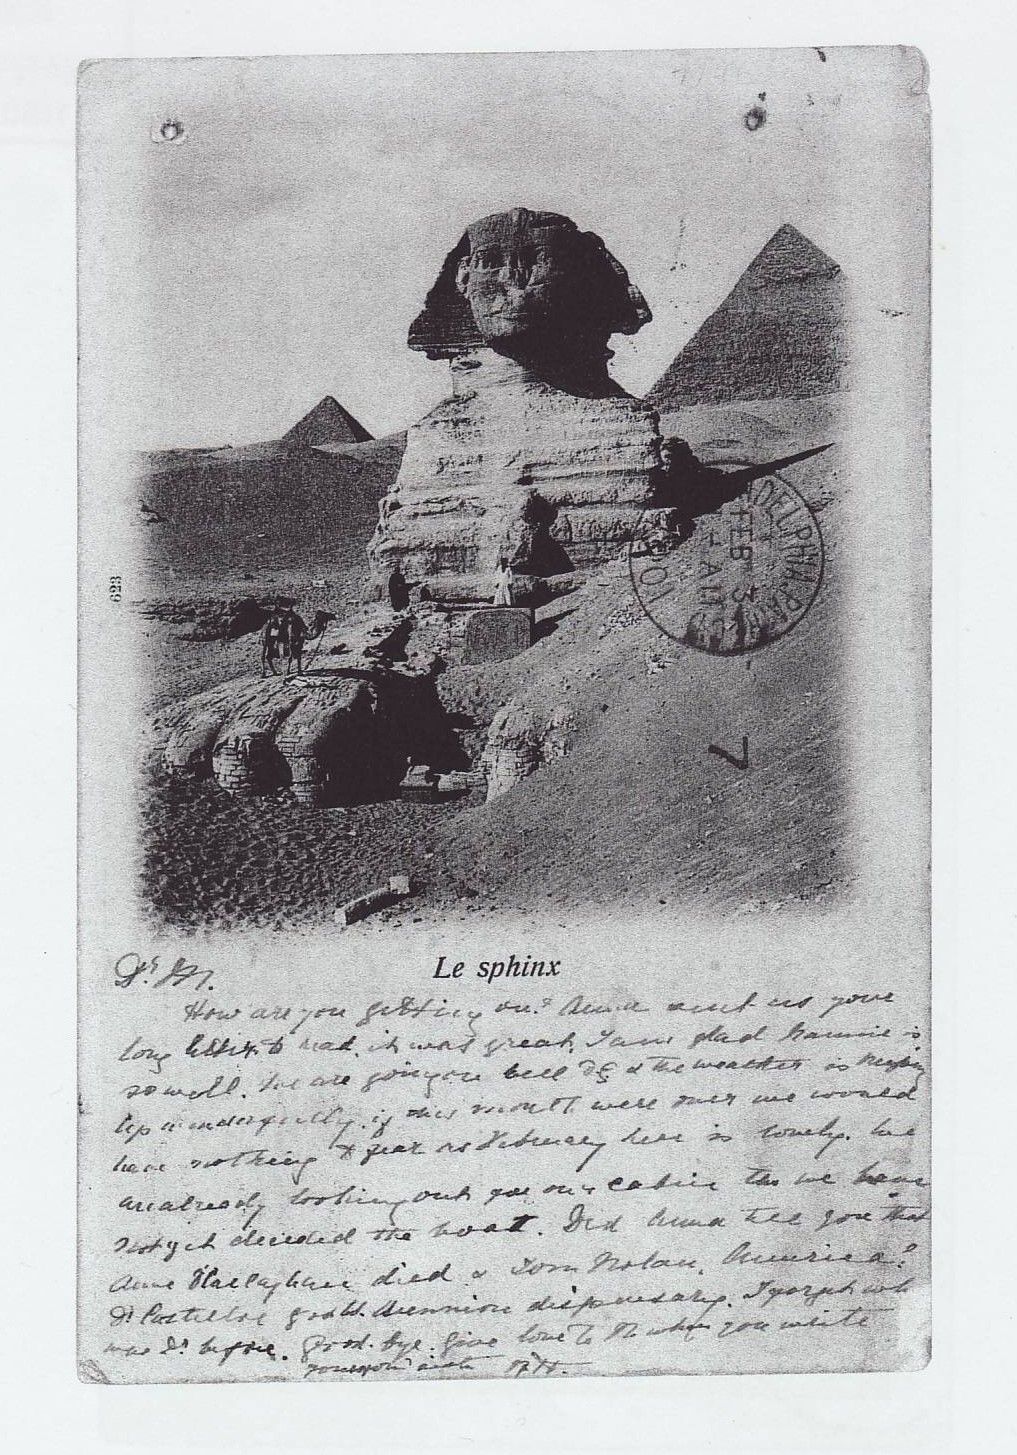 623
DELPHIA.PA
FEB 3
1 A11
7
Le sphinx
Dr M.
How are you getting on? Anna sent us your
long letter to read, it was great, I am glad Nannie is
so well. We are going on well D.G. & the weather is keeping
up wonderfully, if this month were over we would
have nothing to fear as February here is lovely. We
are already looking out for our cabin tho we have
not yet decided the boat. Did Anna tell you that
Anne O'Callaghan died & Tom Nolan, America?
Dr Costelloe got dispensary.
was Dr before. Good. bye. Give love to M when you write